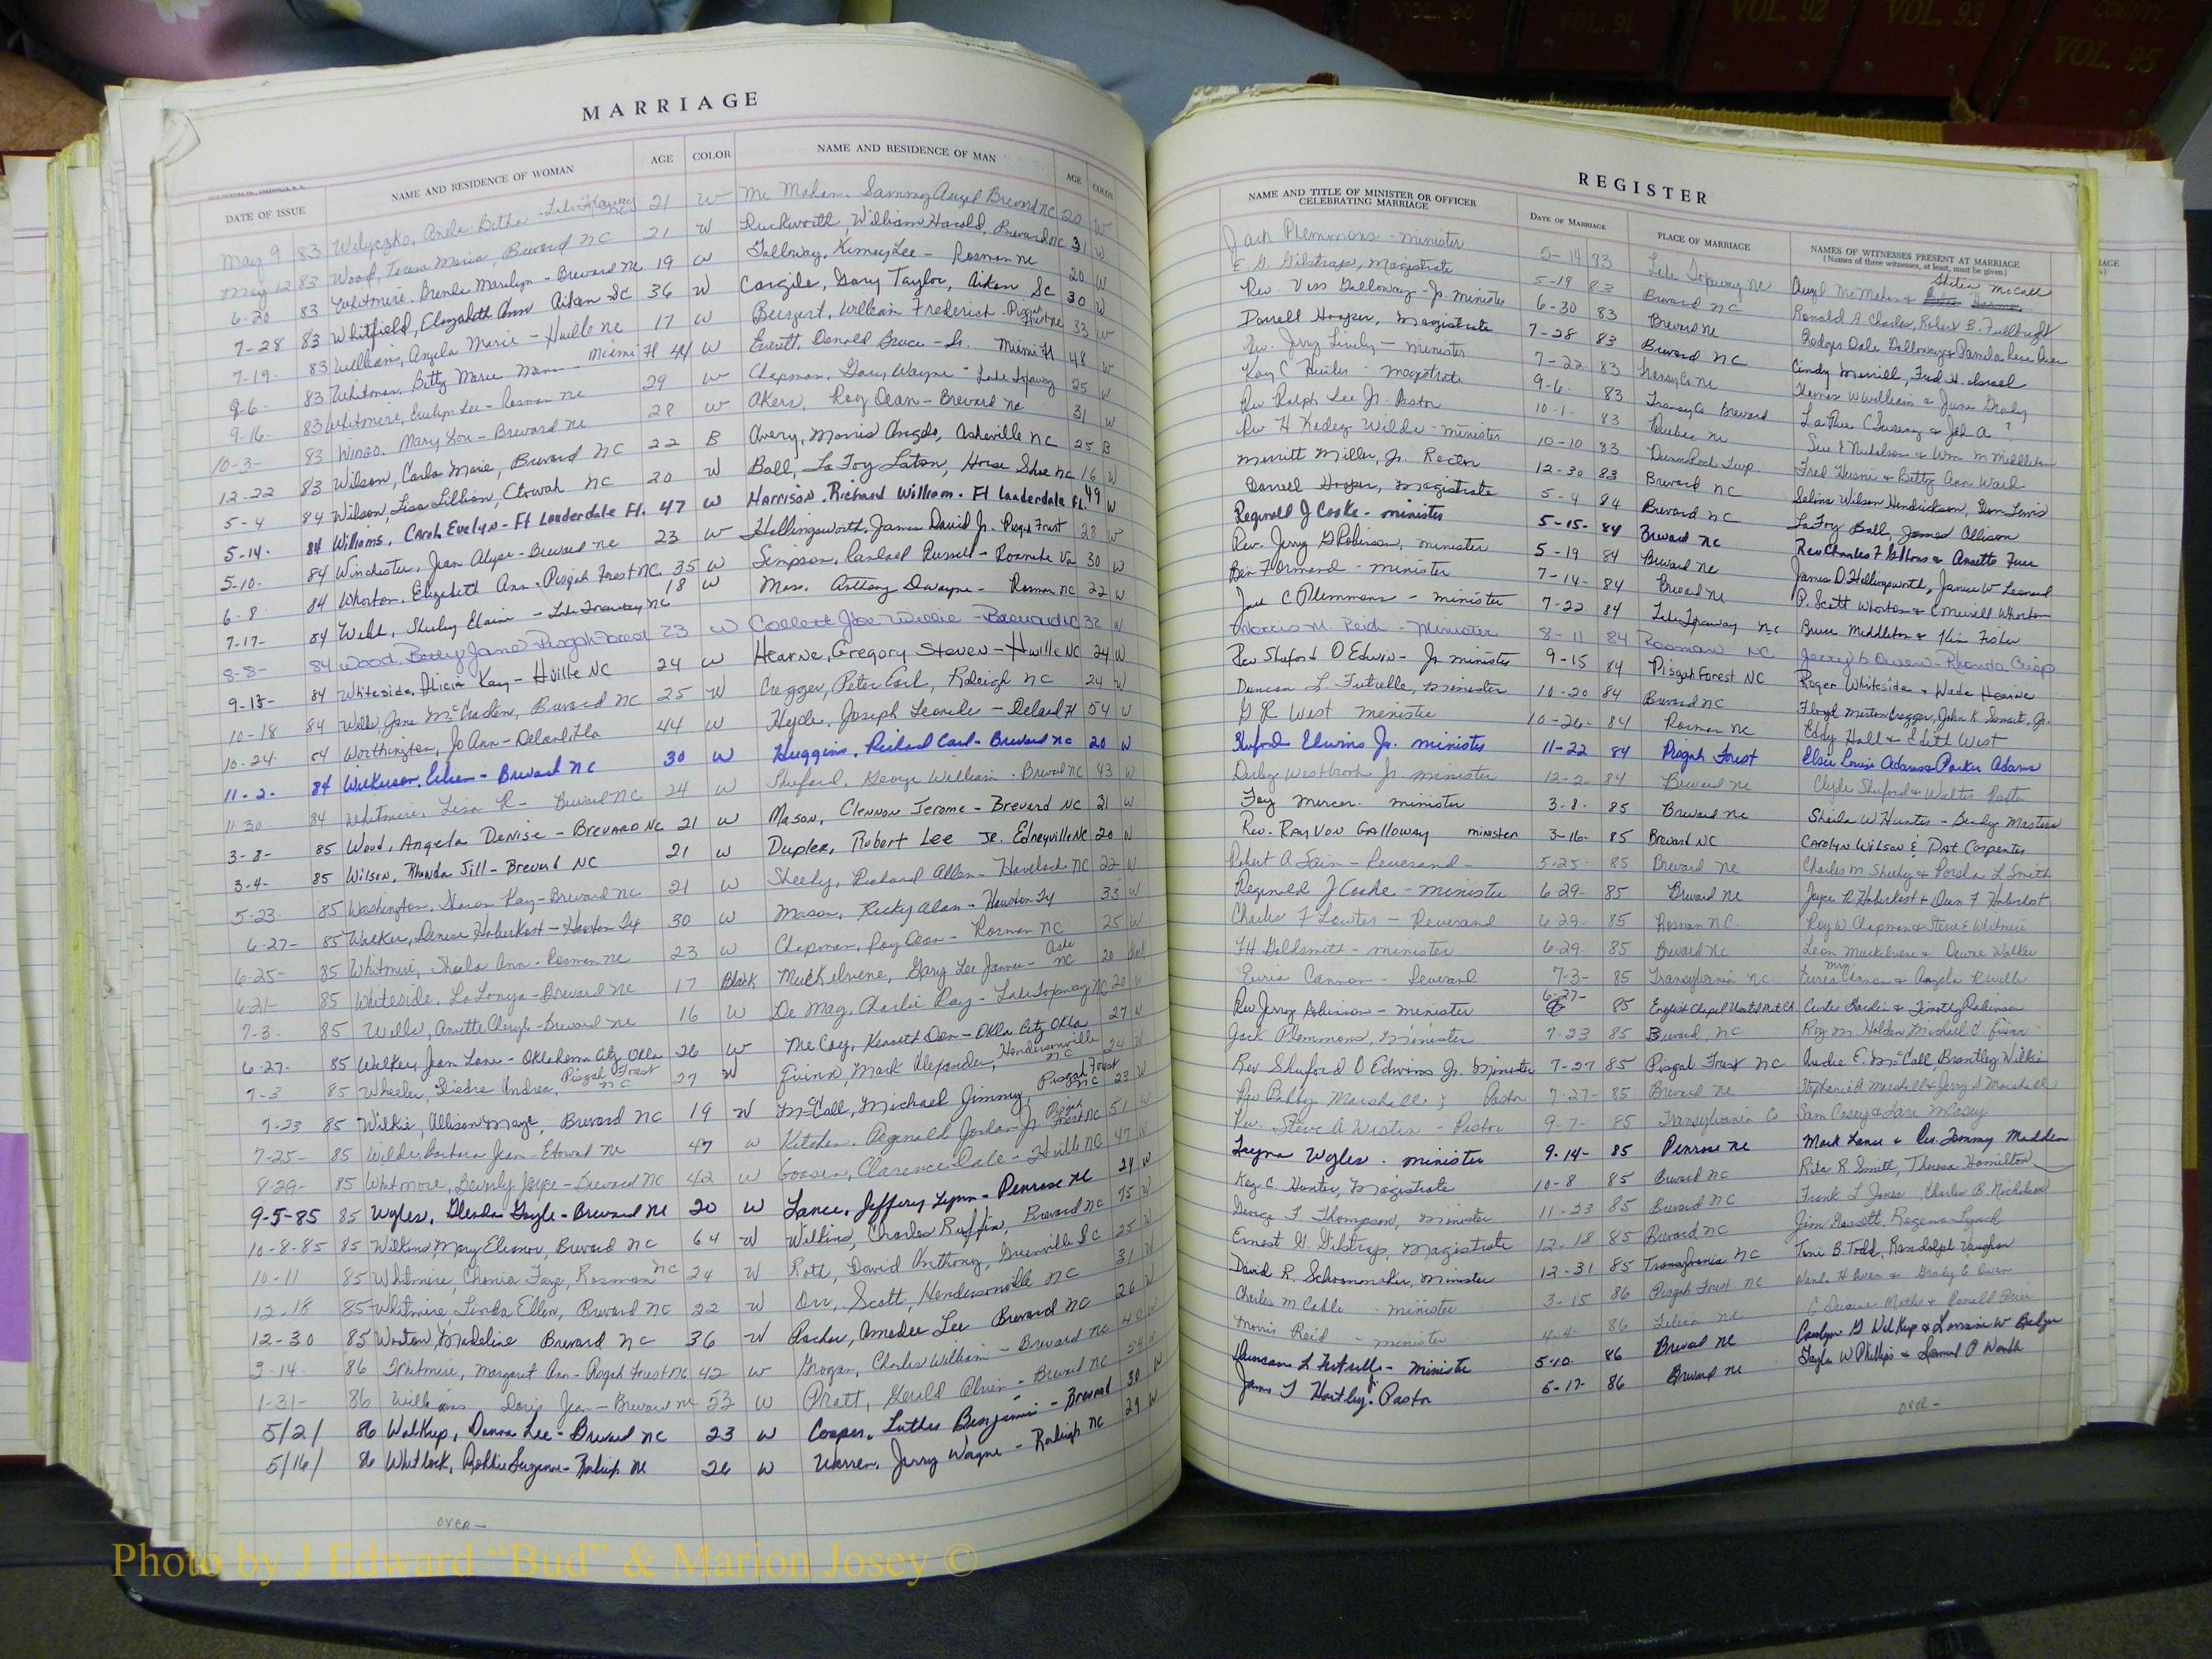 VOL. 90
VOL. 91
VOL. 92
VOL. 93
COUNTY
VOL. 95
MARRIAGE
DATE OF ISSUE
NAME AND RESIDENCE OF WOMAN
AGE
COLOR
NAME AND RESIDENCE OF MAN
AGE
COLOR
May 9 83 Anela Betha - Lake Toxaway NC 21 W Mc Mahan, Sammy Brevard NC 20 W
May 12 83 Wood, Teresa Maria, Brevard NC 21 W Duckworth, William Harold, Brevard NC 31 W
6-20 83 Whitmire, Brenda Marilyn - Brevard NC 19 W Galloway, Kinney Lee - Rosman NC 20 W
7-28 83 Whitfield, Elizabeth Ann Aiken SC 36 W Cargile, Gary Taylor, Aiken SC 30 W
7-19- 83 Williams, Angela Marie - Hville NC 17 W William Frederick - Pisgah Forest NC 33 W
9-6- 83 Whitman, Betty Marie - Miami Fl 44 W Everett, Donald Bruce - Sr. Miami Fl 48 W
9-16- 83 Whitmire, Lee - Rosman NC 29 W Chapman, Gary Wayne - Lake Toxaway 25 W
10-3- 83 Wingo, Mary Lou - Brevard NC 28 W Akers, Roy Dean - Brevard NC 31 W
12-22 83 Wilson, Carla Marie, Brevard NC 22 B Avery, Morris Angelo, Asheville NC 25 B
5-4 84 Wilson, Lisa Lillian, Etowah NC 20 W Ball, LaFoy Laton, Horse Shoe NC 16 W
5-14- 84 Williams, Carol Evelyn - Ft Lauderdale Fl. 47 W Harrison, Richard William - Ft Lauderdale Fl. 49 W
5-10- 84 Winchester, Jean Alyse - Brevard NC 23 W Hollingsworth, James David Jr. Pisgah Forest 28 W
6-8 84 Whorton, Elizabeth Ann - Pisgah Forest NC 35 W Simpson, Russell - Roanoke Va 30 W
7-17- 84 Webb, Shirley Elaine - Lake Toxaway NC 18 W Anthony Dwayne - Rosman NC 22 W
8-8- 84 Wood, Betty Jane - Pisgah Forest 23 W Collett Joe Willie - Brevard NC 32 W
9-13- 84 Whiteside, Alicia Kay - Hville NC 24 W Hearne, Gregory Steven - Hville NC 24 W
10-18 84 Jane McCracken, Brevard NC 25 W Cregger, Peter Earl, Raleigh NC 24 W
10-24- 84 Worthington, Jo Ann - Deland Fla 44 W Hyde, Joseph Leander - Deland Fl 54 W
11-2- 84 Wilkerson, Eileen - Brevard NC 30 W Huggins, Richard Carl - Brevard NC 20 W
11-30 84 Whitmire, Lisa R - Brevard NC 24 W Shuford, George William - Brevard NC 43 W
3-8- 85 Wood, Angela Denise - Brevard NC 21 W Mason, Clennon Jerome - Brevard NC 21 W
3-4- 85 Wilson, Rhonda Jill - Brevard NC 21 W Dupler, Robert Lee Jr. Edneyville NC 20 W
5-23- 85 Washington, Sharon Kay - Brevard NC 21 W Sheehy, Richard Allen - Havelock NC 22 W
6-27- 85 Walker, Denise Haberkost - Houston Tx 30 W Mason, Ricky Alan - Houston Tx 33 W
6-25- 85 Whitmire, Sheila Ann - Rosman NC 23 W Chapman, Roy Dean - Rosman NC 25 W
6-21- 85 Whiteside, LaTonya - Brevard NC 17 Black Gary Lee James - NC 20
7-3- 85 Wells, Annette Cheryl - Brevard NC 16 W Charlie Ray - Lake Toxaway NC 20 W
6-27- 85 Walker, Jean Lane - Oklahoma City, Okla 26 W McCoy, Kenneth Don - Okla City Okla 27 W
7-3 85 Wheeler, Diedre Andrea, Pisgah Forest NC 27 W Guinn, Mark Alexander, Hendersonville NC 24 W
7-23 85 Wilkie, Allison Maye, Brevard NC 19 W McCall, Michael Jimmy, Pisgah Forest NC 23 W
7-25- 85 Wilde, Barbara Jean, Etowah NC 47 W Kitchen, Reginald Jordan Jr. Pisgah Forest NC 51 W
8-29- 85 Whitmore, Beverly Joyce - Brevard NC 42 W Clarence Dale - Hville NC 47 W
9-5-85 85 Wyles, Glenda Gayle - Brevard NC 20 W Lance, Jeffery Lynn - Penrose NC 24 W
10-8-85 85 Wilkins Mary Eleanor, Brevard NC 64 W Wilkins, Charles Ruffin, Brevard NC 75 W
10-11 85 Whitmire, Faye, Rosman NC 24 W Roth, David Anthony, Greenville SC 25 W
12-18 85 Whitmire, Linda Ellen, Brevard NC 22 W Orr, Scott, Hendersonville NC 31 W
12-30 85 Madeline Brevard NC 36 W Amedee Lee Brevard NC 26 W
3-14- 86 Whitmire, Margaret Ann - Pisgah Forest NC 42 W Grogan, Charles William - Brevard NC 40 W
1-31- 86 Williams Doris Jean - Brevard NC 53 W Pratt, Gerald - Brevard NC 54 W
5/2/ 86 Walkup, Donna Lee - Brevard NC 23 W Cooper, Luther Benjamin - Brevard 30 W
5/16/ 86 Whitlock, Robbie Suzanne - Raleigh NC 26 W Warren, Jerry Wayne - Raleigh NC 29 W
over-
REGISTER
NAME AND TITLE OF MINISTER OR OFFICER CELEBRATING MARRIAGE
DATE OF MARRIAGE
PLACE OF MARRIAGE
NAMES OF WITNESSES PRESENT AT MARRIAGE
(Names of three witnesses, at least, must be given)
Jack Plemmons - minister 5-14 83 Lake Toxaway NC McMahan & McCall
E. G. Gilstrap, Magistrate 5-19 83 Brevard NC Ronald A. Charles, Robert B. Fullbright
Rev. Vess Galloway - Jr. minister 6-30 83 Brevard NC Rodger Dale Galloway & Pamela
Darrell Hooper, Magistrate 7-28 83 Brevard NC Cindy Merrill, Fred H. Israel
Rev. Jerry Lively - minister 7-22 83 Transy Co NC Thomas W William & June
Kay C Hunter - magistrate 9-6- 83 Transy Co Brevard
Rev Ralph Lee Jr. Pastor 10-1- 83 Quebec NC Sue E Nicholson & Wm M Middleton
Rev H Wilde - minister 10-10 83 Dunn Rock Twp Fred & Betty Ann Ward
Merritt Miller, Jr. Rector 12-30 83 Brevard NC Selina Wilson Hendrickson, Don Lewis
Darrell Hooper, Magistrate 5-4 84 Brevard NC LaFoy Ball, James Allison
Reginald J Cooke - minister 5-15- 84 Brevard NC Rev Charles F & Annette
Rev. Jerry G Robinson, minister 5-19 84 Brevard NC James D Hollingsworth, Janice W Leonard
Ben F Ormand - minister 7-14- 84 Brevard NC P. Scott Whorton & C Merrill Whorton
Jack C Plemmons - minister 7-22 84 Lake Toxaway NC Bruce Middleton & Kim Fisher
Morris M. Reid - Minister 8-11 84 Rosman NC Jerry L Owen - Rhonda Crisp
Rev Shuford O Edwin - Jr minister 9-15 84 Pisgah Forest NC Roger Whiteside & Wade Hearne
Duncan L Futrelle, minister 10-20 84 Brevard NC Floyd Merton Cregger, John K. Jr.
G R West minister 10-26- 84 Rosman NC Eddy Hall & Edith West
Shuford Edwins Jr. minister 11-22 84 Pisgah Forest Elsie Louise Adams & Parker Adams
Westbrook Jr. minister 12-2 84 Brevard NC Clyde Shuford & Walter
Fay Mercer - minister 3-8- 85 Brevard NC Sheila W Hunter -
Rev. Ray Von Galloway minister 3-16- 85 Brevard NC Carolyn Wilson & Pat Carpenter
Robert A Sain - Reverand - 5-25 85 Brevard NC Charles M Sheehy & L Smith
Reginald J Cooke - minister 6-29- 85 Brevard NC Joyce R Haberkost & Dean F Haberkost
Charles F Lowter - Reverand 6-29- 85 Rosman NC - Roy W Chapman & Steve E Whitmire
F H Goldsmith - minister 6-29- 85 Brevard NC Leon & Walker
Cannon - Reverand 7-3- 85 Transylvania NC Mrs Cannon & Angela
Rev Jerry Robinson - minister 6-27- 85 English Chapel United & Timothy Robinson
Jack Plemmons, Minister 7-23 85 Brevard NC Roy M. Holden, Michael C. Guinn
Rev Shuford O Edwins Jr. Minister 7-27 85 Pisgah Forest NC Audie E. McCall, Brantley Wilkie
Rev Bobby Marshall, Pastor 7-27- 85 Brevard NC Marshall & Jerry Marshall
Rev. Steve A Westin - Pastor 9-7- 85 Transylvania Co Sam Casey &
Wyles - minister 9-14- 85 Penrose NC Mark Lance & Tommy Madden
Kay C. Hunter, Magistrate 10-8 85 Brevard NC Rita R. Smith, Theresa Hamilton
George F Thompson, minister 11-23 85 Brevard NC Frank L Jones, Charles B. Nicholson
Ernest G. Gilstrap, Magistrate 12-18 85 Brevard NC Jim Gossett, Rogena Lynch
David R. Schoonmaker, Minister 12-31 85 Transylvania NC Toni B. Todd, Randolph Vaughan
Charles M Cable - minister 3-15 86 Pisgah Forest NC
Morris Reid - minister 4-4- 86
Duncan L Futrelle - Minister 5-10 86 Brevard NC Carolyn G Walkup &
James T Hartley - Pastor 5-17 86 Brevard NC W Phillips & Samuel P
over-
Photo by J Edward “Bud” & Marion Josey ©